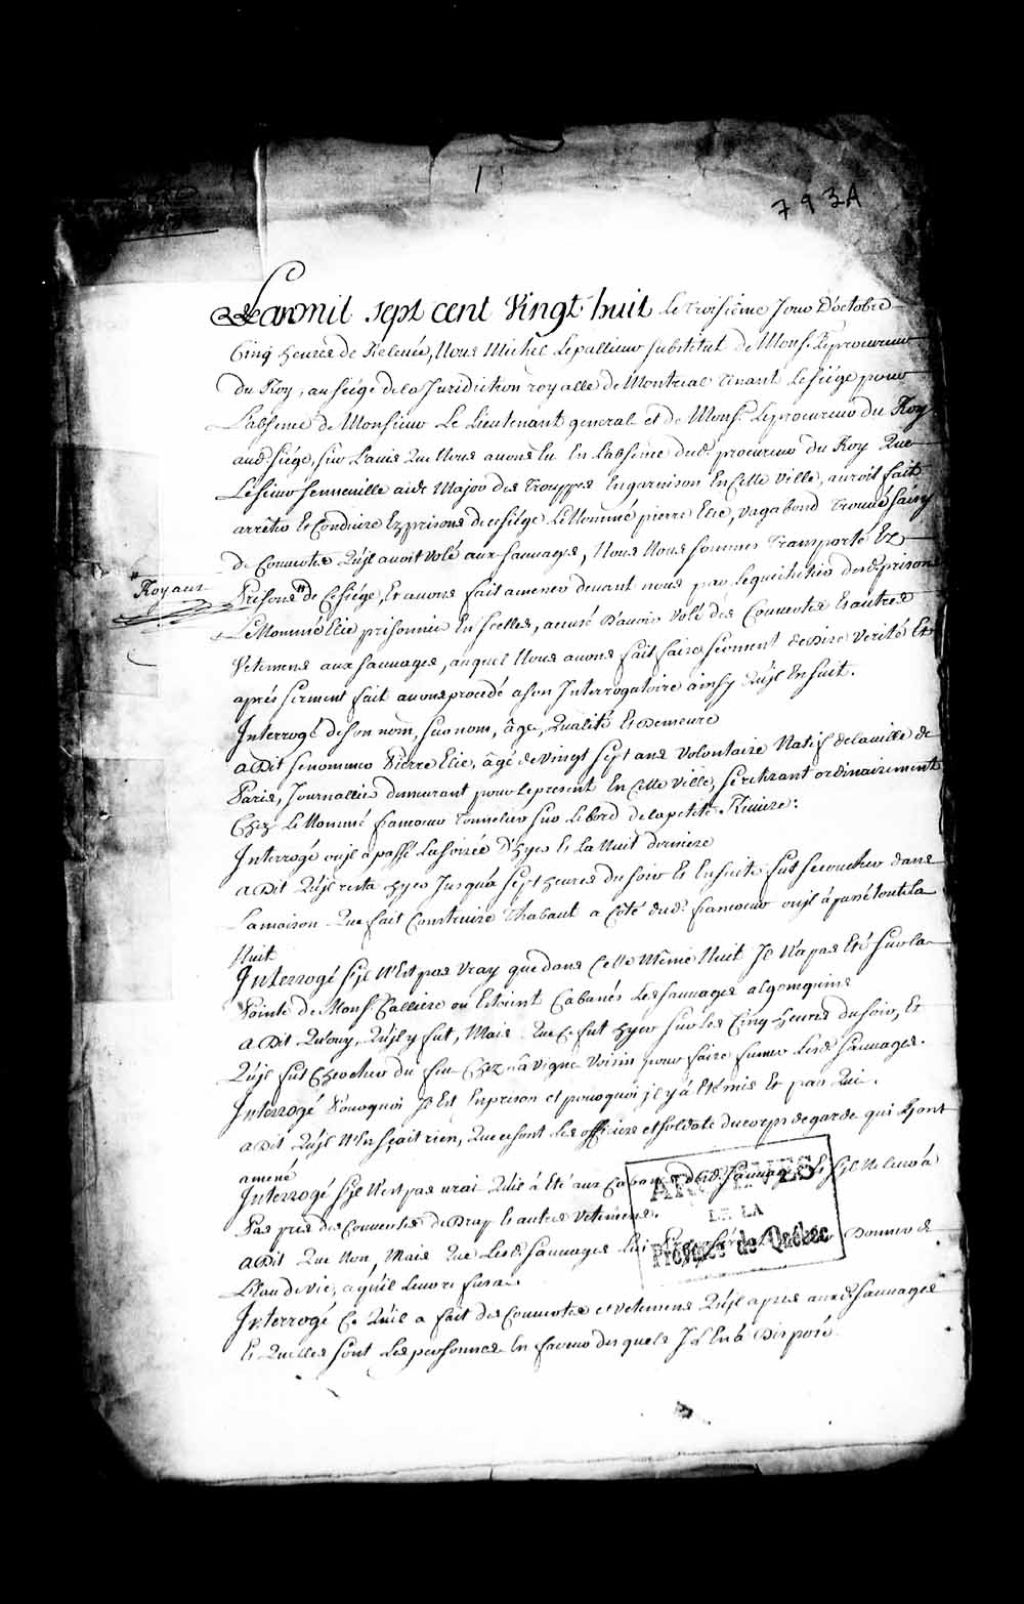 1
793A
L'an mil sept cent Vingt huit le troisiême Jour D'octobre
Cinq heures de Relevée, Nous Michel Lepallieur substitut de Mons.r Leprocureur
du Roy, au siége de la Juridiction royalle de Montreal tenant le siége pour
L'absence de Monsieur Le Lieutenant general et de Mons.r Leprocureur du Roy
aud. siége, sur L'avis Que Nous avons Eu En L'absence dud. procureur du Roy Que
Lesieur senneville aide Major des trouppes En garnison En Cette Ville, auroit fait
arrêter Et Conduire Ez prisons de ce siége Le Nommé pierre Elie, vagabond trouvé saisy
de Couvertes Qu'jl avoit Volé aux sauvages, Nous Nous sommes transporté Ez
" Royaux
Prisons " de Ce siége, Et avons fait amener devant nous par le desd. prisons
Le Nommé Elie prisonnier En Jcelles, accusé D'avoir Volé des Couvertes Et autres
Vetemens aux sauvages, auquel Nous avons fait faire serment de Dire Verité Et
aprés serment fait avons procedé a son Jnterrogatoire ainsy Qu'jl Ensuit.
Jnterrogé de son nom, surnom, âge, Qualité Et Demeure
a Dit se nommer Pierre Elie, âgé de Vingt sept ans Volontaire Natif de la ville de
Paris, Journallier demeurant pour le present En Cette Ville, se retirant ordinairement
Chez Le Nommé francoeur tonnelier sur Le bord de la petite Riviere:
Jnterrogé ou jl a passé La soirée D'hyer Et La Nuit derniere
a Dit Qu'jl resta hyer Jusqu'a sept heures du soir Et Ensuite fut se coucher dans
La maison Que fait Construire Chabaut a Côté dud. francoeur ou jl à passé toute la
Nuit
Jnterrogé s'jl N'Est pas Vray que dans Cette Même Nuit Jl N'a pas Eté sur la
Pointe de Mons.r Calliere ou Estoient Cabanés Les sauvages algonquins
a Dit Qu'ouy, Qu'jl y fut, Mais Que Ce fut hyer sur Les Cinq heures du soir, Et
Qu'jl fut Chercher du feu Chez La Vigne Voisin pour faire fumer Lesd. sauvages.
Jnterrogé Pourquoi Jl Est En prison et pourquoi jl y à Eté mis Et par Qui.
a Dit Qu'jl N'En sçait rien, Que ce sont Les officiers et soldats du corps de garde qui L'y ont
amené
Jnterrogé s'jl N'est pas vrai Qu'il à Eté aux Cabanes Desd. sauvages Et s'jl Ne leur à
Pas pris des Couvertes de Drap Et autres Vetemens.
a Dit Que Non, Mais Que Lesd. sauvages Lui Donner de
L'Eau de Vie, a qu'il
Jnterrogé Ce Qu'il a fait des Couvertes et Vetemens Qu'jl a pris auxd. sauvages
Et Quelles sont Les personnes En faveur desquels Jl En à Disposé
ARCHIVES
DE LA
Province de Québec